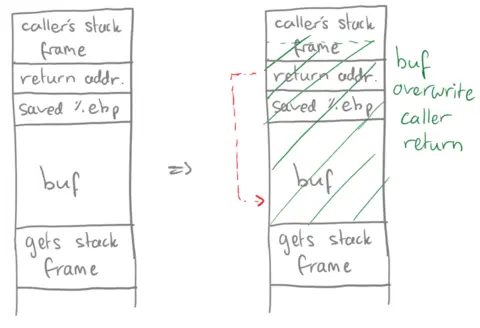 caller's stack
frame
return addr.
saved %ebp
buf
gets stack
frame
=>
caller's stack
frame
return addr.
saved %ebp
buf
gets stack
frame
buf
overwrite
caller
return